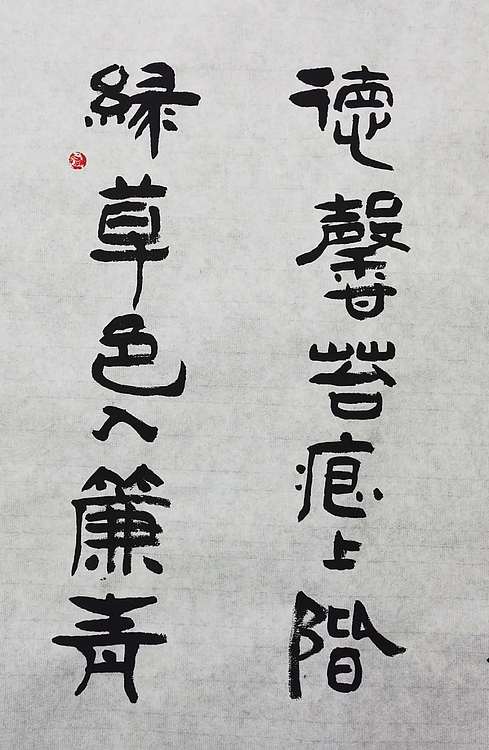 德馨苔痕上階
緑草色入簾青